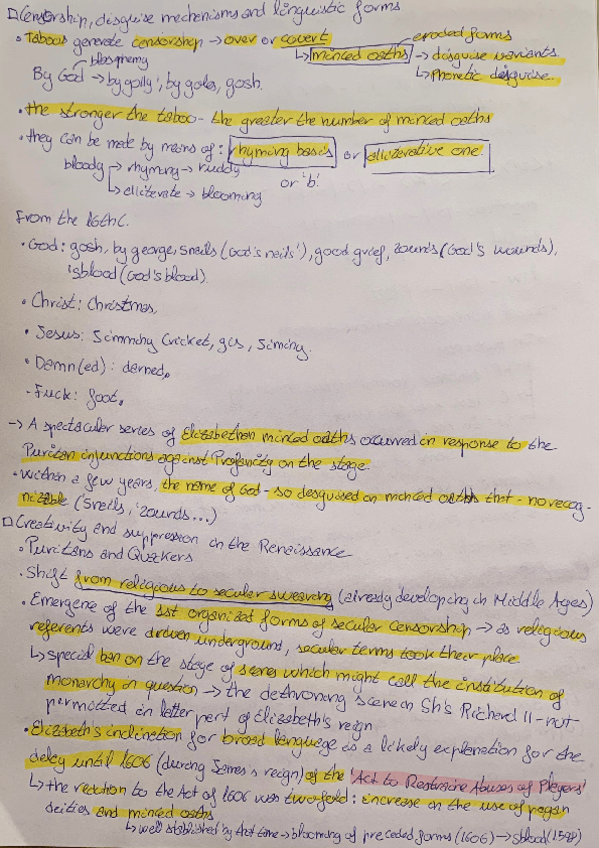 □Censorship, disguise mechanisms and linguistic forms
• Taboos generate censorship → over or covert eroded forms
blasphemy ↳ minced oaths → disguise variants.
By God → by golly', by gole, gosh. ↳ Phonetic disguise.
• the stronger the taboo - the greater the number of minced oaths
• they can be made by means of: rhyming basis or alliterative one.
bloody → rhyming → ruddy or 'b'.
↳ aliterate → blooming
From the 16th C.
• God: gosh, by george, snails (God's nails'), good grief, zounds (God's wounds),
'sblood (God's blood).
• Christ: Christmas,
• Jesus: Jimminy Cricket, gis, Jiminy.
• Damn(ed): darned,
- Fuck: foot,
-> A spectacular series of Elizabethan minced oaths occurred in response to the
Puritan injunctions against Profanity on the stage
• within a few years, the name of God - so desguised on minced oaths that - no recog-
nizable ('Snails, 'zounds...)
□Creativity and suppression in the Renaissance
• Puritans and Quakers
• Shift from religious to secular swearing (already developing in Middle Ages)
• Emergene of the 1st organized forms of secular censorship → as religious
referents were driven underground, secular terms took their place
↳ special ban on the stage of scenes which might call the institution of
monarchy in question → the dethroning scene in Sh's Richard II - not
permitted in latter part of Elizabeth's reign
• Elizabeth's inclination for broad language is a likely explanation for the
delay until 1606 (during James's reign) of the 'Act to Restraine Abuses of Players'
↳ the reaction to the Act of 1606 was twofold: increase in the use of pagan
deities and minced oaths
↳ well stablished by that time → blooming of preceded forms (1606) → sblood (1598)